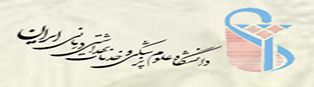 دانشگاه علوم پزشکی و خدمات بهداشتی درمانی ایران